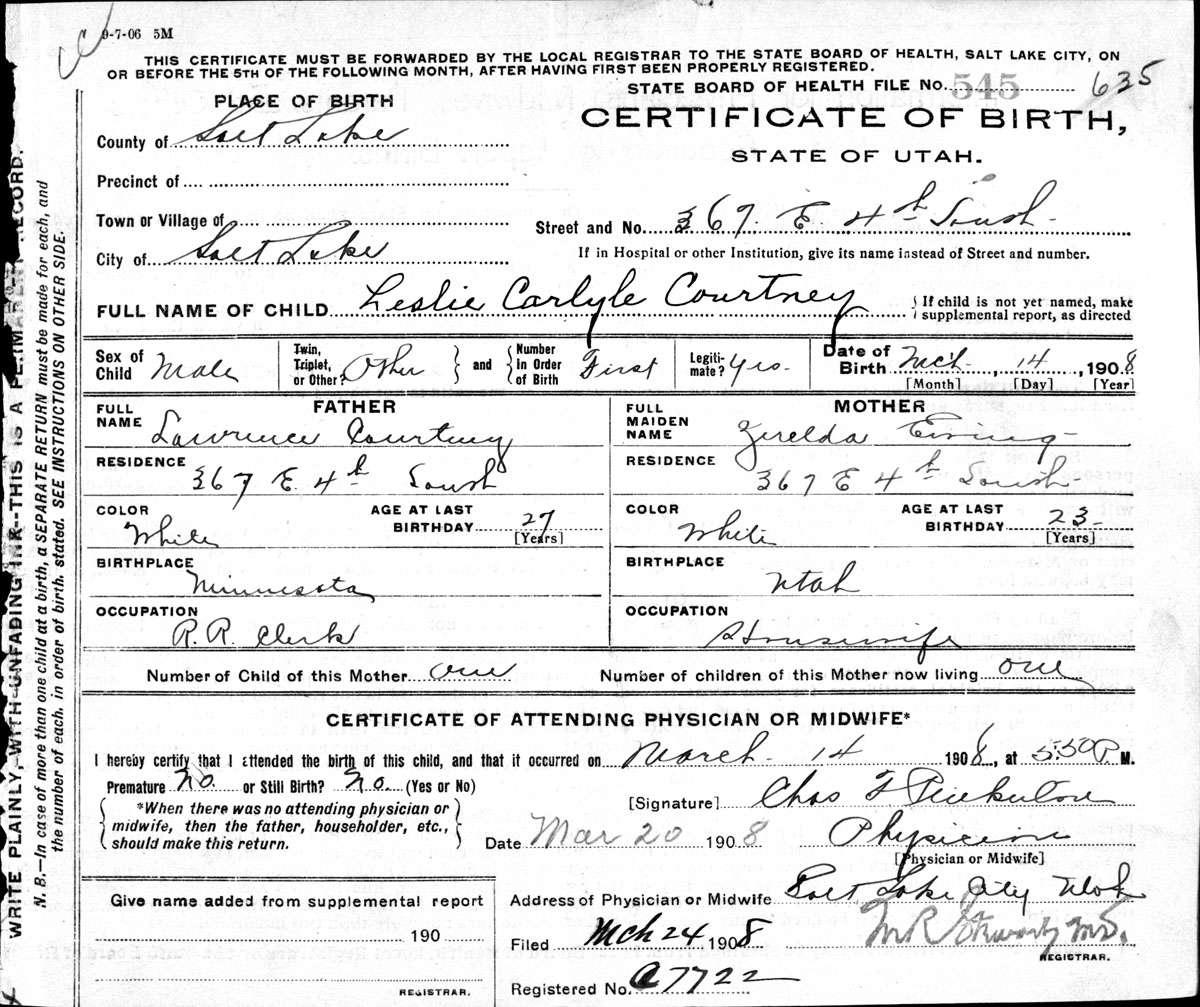 9-7-06 5M
THIS CERTIFICATE MUST BE FORWARDED BY THE LOCAL REGISTRAR TO THE STATE BOARD OF HEALTH, SALT LAKE CITY, ON
OR BEFORE THE 5TH OF THE FOLLOWING MONTH, AFTER HAVING FIRST BEEN PROPERLY REGISTERED.
STATE BOARD OF HEALTH FILE No. 545 635
PLACE OF BIRTH
CERTIFICATE OF BIRTH,
STATE OF UTAH.
County of Salt Lake
Precinct of
Town or Village of
Street and No. 367 E 4th South
City of Salt Lake
If in Hospital or other Institution, give its name instead of Street and number.
FULL NAME OF CHILD Leslie Carlyle Courtney
If child is not yet named, make
supplemental report, as directed
Sex of Child Male
Twin, Triplet, or Other? Other and Number in Order of Birth First
Legitimate? Yes.
Date of Birth Mch. 14, 1908
[Month] [Day] [Year]
FATHER
FULL NAME Lawrence Courtney
RESIDENCE 367 E 4th South
COLOR White
AGE AT LAST BIRTHDAY 27
[Years]
BIRTHPLACE Minnesota
OCCUPATION R.R. Clerk
MOTHER
FULL MAIDEN NAME Zerelda Ewing
RESIDENCE 367 E 4th South
COLOR White
AGE AT LAST BIRTHDAY 23
[Years]
BIRTHPLACE Utah
OCCUPATION Housewife
Number of Child of this Mother one
Number of children of this Mother now living one
CERTIFICATE OF ATTENDING PHYSICIAN OR MIDWIFE*
I hereby certify that I attended the birth of this child, and that it occurred on March 14 1908, at 5:50 P. M.
Premature No. or Still Birth? No. (Yes or No)
*When there was no attending physician or
midwife, then the father, householder, etc.,
should make this return.
[Signature] Chas F. Pinkerton
Date Mar 20 1908 Physician
[Physician or Midwife]
Address of Physician or Midwife Salt Lake City Utah
Give name added from supplemental report
190
REGISTRAR.
Filed Mch 24 1908
M.D.
REGISTRAR.
Registered No. 7722
WRITE PLAINLY WITH UNFADING INK--THIS IS A PERMANENT RECORD.
N. B.—In case of more than one child at a birth, a SEPARATE RETURN must be made for each, and
the number of each, in order of birth, stated. SEE INSTRUCTIONS ON OTHER SIDE.